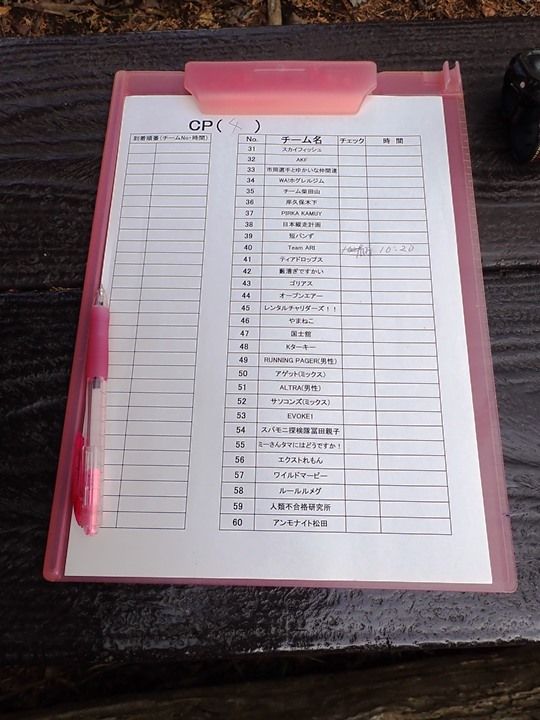 CP( 4 )
到着順番(チームNo・時間)
No. チーム名 チェック 時 間
31 スカイフィッシュ
32 AKF
33 市岡選手とゆかいな仲間達
34 WA!ホグレルジム
35 チーム柴田山
36 岸久保木下
37 PIRKA KAMUY
38 日本縦走計画
39 短パンず
40 Team ARI 10:20
41 ティアドロップス
42 藪漕ぎですかい
43 ゴリアス
44 オープンエアー
45 レンタルチャリダーズ!!
46 やまねこ
47 国士舘
48 Kターキー
49 RUNNING PAGER(男性)
50 アゲット(ミックス)
51 ALTRA(男性)
52 サソコンズ(ミックス)
53 EVOKE1
54 スパモニ探検隊冨田親子
55 ミーさんタマにはどうですか!
56 エクストれもん
57 ワイルドマーピー
58 ルールルメグ
59 人類不合格研究所
60 アンモナイト松田